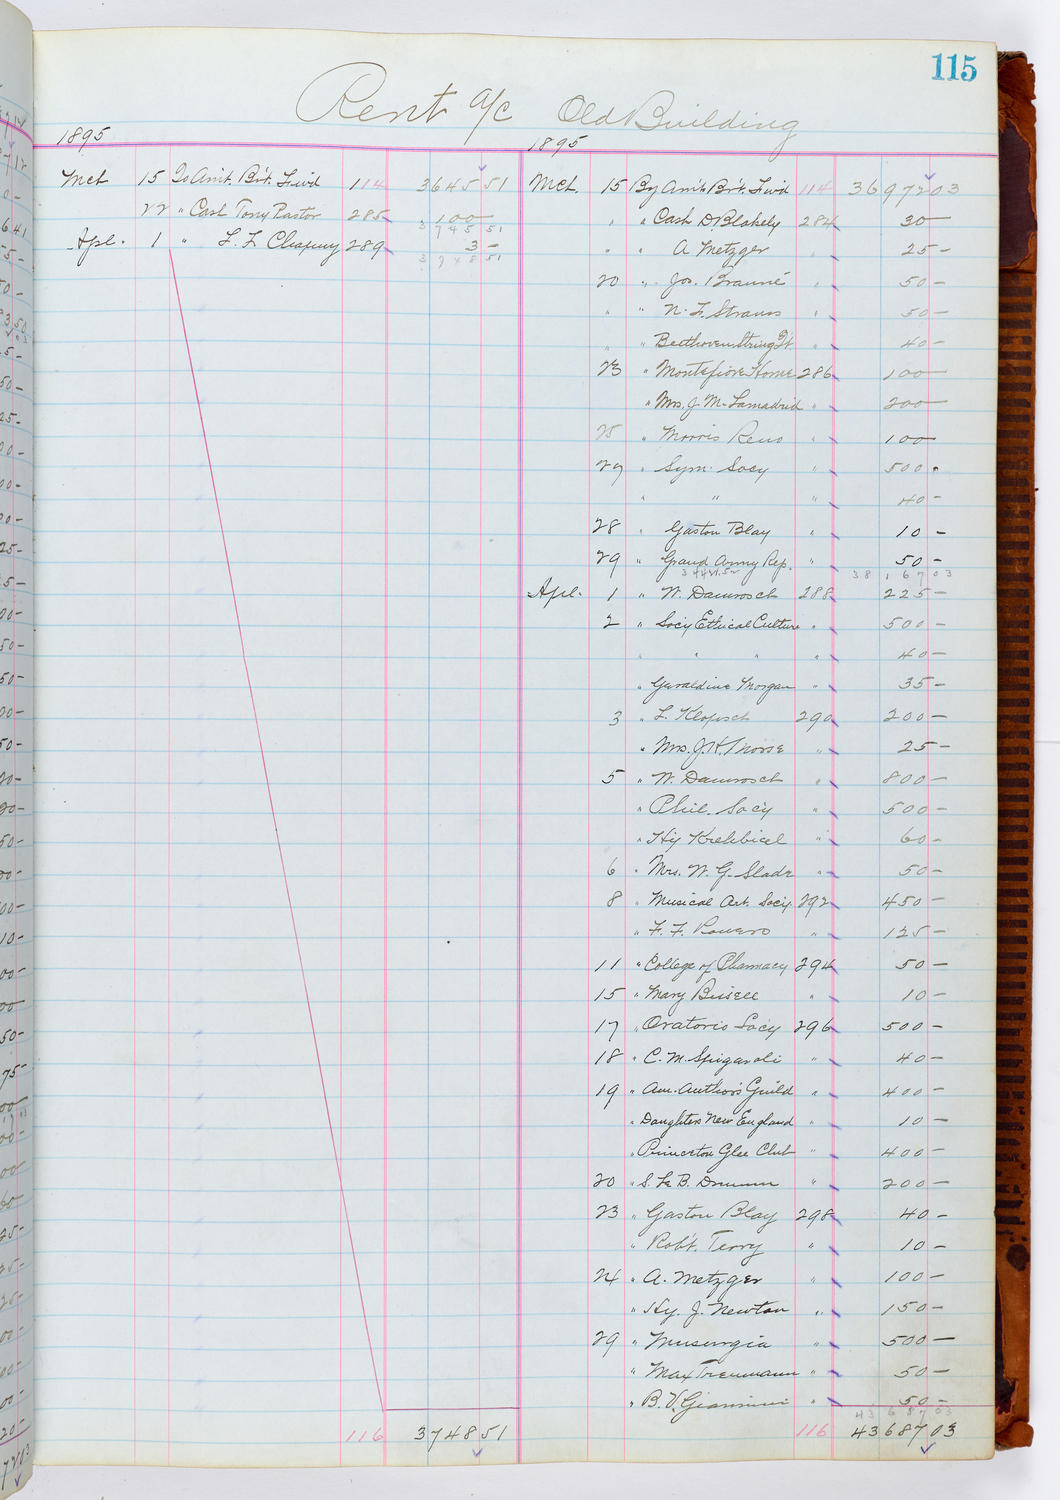 115
Rent a/c Old Building
1895
Mch 15 To Amt. Br't. Fwd 114 3645 51
22 " Cash Tony Pastor 285 100 —
3745 51
Apl. 1 " L. L. Chapeny 289 3 —
3748 51
116 3748 51
1895
Mch. 15 By Am't Br't. Fwd 114 36972 03
" " Cash D. Blakely 284 30 —
" " A Metzger " 25 —
20 " Jos. Brauné " 50 —
" " N. L. Strauss " 50 —
" " Beethoven String Qt. " 40 —
23 " Montefiore Home 286 100 —
" Mrs. J. M. Lamadrid " 200 —
25 " Morris Reno " 100 —
27 " Sym. Socy " 500 .
" " " 40 —
28 " Gaston Blay " 10 —
29 " Grand Army Rep. " 50 —
38167 03
Apl. 1 " W. Damrosch 288 225 —
2 " Socy Ethical Culture " 500 —
" " " " 40 —
" Geraldine Morgan " 35 —
3 " L. Klopsch 290 200 —
" Mrs. J. H. Morse " 25 —
5 " W. Damrosch " 800 —
" Phil. Socy " 500 —
" Hy Krehbiel " 60 —
6 " Mrs. W. G. Slade " 50 —
8 " Musical Art. Socy. 292 450 —
" F. F. Powers " 125 —
11 " College of Pharmacy 294 50 —
15 " Mary Bissell " 10 —
17 " Oratorio Socy 296 500 —
18 " C. M. Spigaroli " 40 —
19 " Am. Author's Guild " 400 —
" Daughters New England " 10 —
" Princeton Glee Club " 400 —
20 " S. Le B. Drumm " 200 —
23 " Gaston Blay 298 40 —
" Rob't. Terry " 10 —
24 " A. Metzger " 100 —
" Hy. J. Newton " 150 —
29 " Musurgia " 500 —
" Max Treumann " 50 —
" B. V. Giannini " 50 —
43687 03
116 43687 03